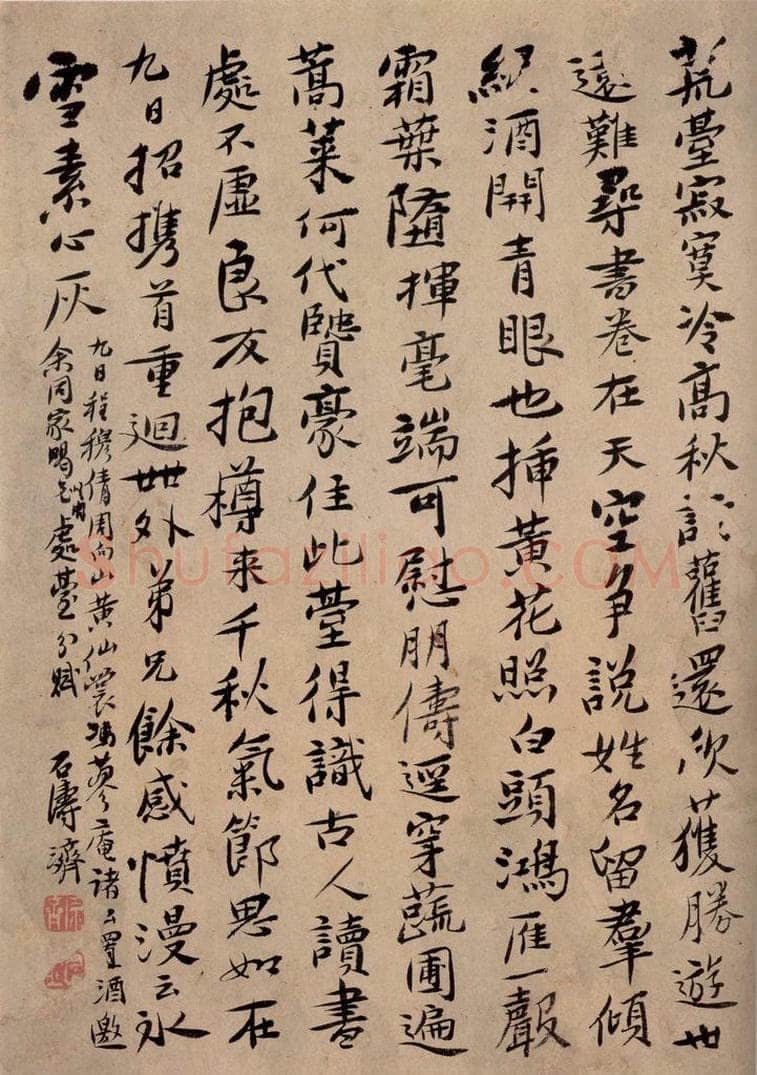 荒臺寂寞冷高秋訪舊還欣獲勝遊世
遠難尋書卷在天空爭説姓名留羣傾
酒開青眼也插黃花照白頭鴻雁一聲
霜葉墮揮毫端可慰朋儔逕穿蔬圃遍
蒿萊何代賢豪住此臺得識古人讀書
處不虛良友抱樽来千秋氣節思如在
九日招攜首重迴世外弟兄餘感憤漫云冰
雪素心灰
九日程穆倩周向山黃仙裳馮蓼庵諸公置酒邀
余同家喝處臺分賦 石濤濟
Shufaziliao.COM